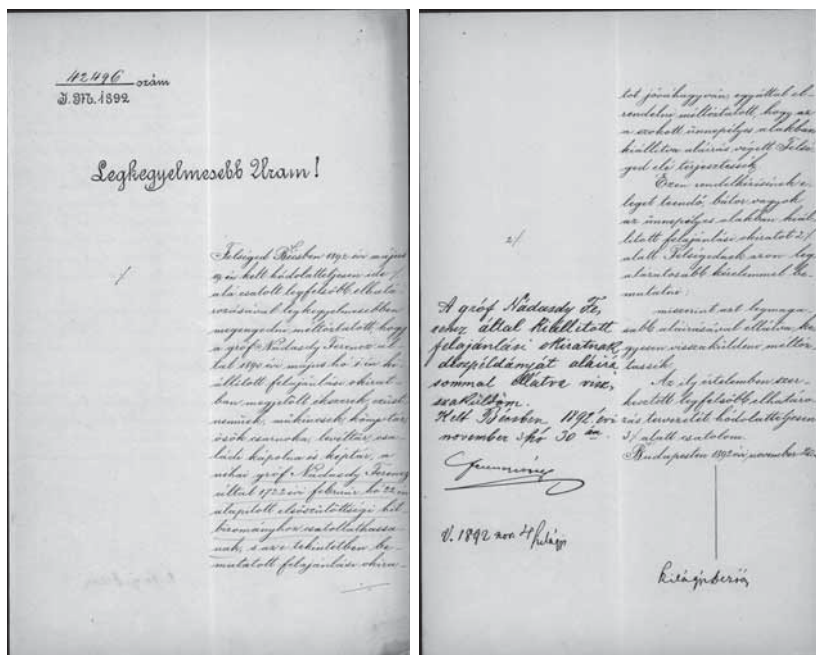 42496 szám
I. M. 1892
Legkegyelmesebb Uram!
Felséged Bécsben 1892 évi május
én kelt hódolatteljesen ide 1/.
alá csatolt legfelsőbb elhatá-
rozásával legkegyelmesebben
megengedni méltóztatott, hogy
a gróf Nádasdy Ferencz ál-
tal 1890 évi május hó 1 én ki-
állított felajánlási okirat-
ban megjelölt ékszerek, ezüst
neműek, műkincsek, könyvtár
ősök csarnoka, levéltár, csa-
ládi kápolna és képtár, a
néhai gróf Nádasdy Ferencz
által 1722 évi február hó 22 én
alapított elsőszülöttségi hit-
bizományhoz csatoltathassa-
nak, s az e tekintetben be-
mutatott felajánlási okira-
1/.
tot jóváhagyván, egyúttal el-
rendelni méltóztatott, hogy az
a szokott ünnepélyes alakban
kiállítva aláírás végett Felsé-
ged elé terjesztessék.
Ezen rendelkezésének e-
leget teendő, bátor vagyok
az ünnepélyes alakban kiál-
lított felajánlási okiratot 2/.
alatt Felségednek azon leg-
alázatosabb kérelemmel be-
mutatni:
miszerint azt legmaga-
sabb aláírásával ellátva, ke-
gyesen visszaküldeni méltóz-
tassék.
Az ily értelemben szer-
kesztett legfelsőbb elhatáro-
zás tervezetét hódolatteljesen
3/. alatt csatolom.
Budapesten 1892 évi november
2/.
A gróf Nádasdy Fe-
rencz által kiállított
felajánlási okiratnak
díszpéldányját aláírá-
sommal ellátva visz-
szaküldöm.
Kelt Bécsben, 1892. évi
november hó 30 án.
V. 1892 nov. 4
Szilágyi Dezső